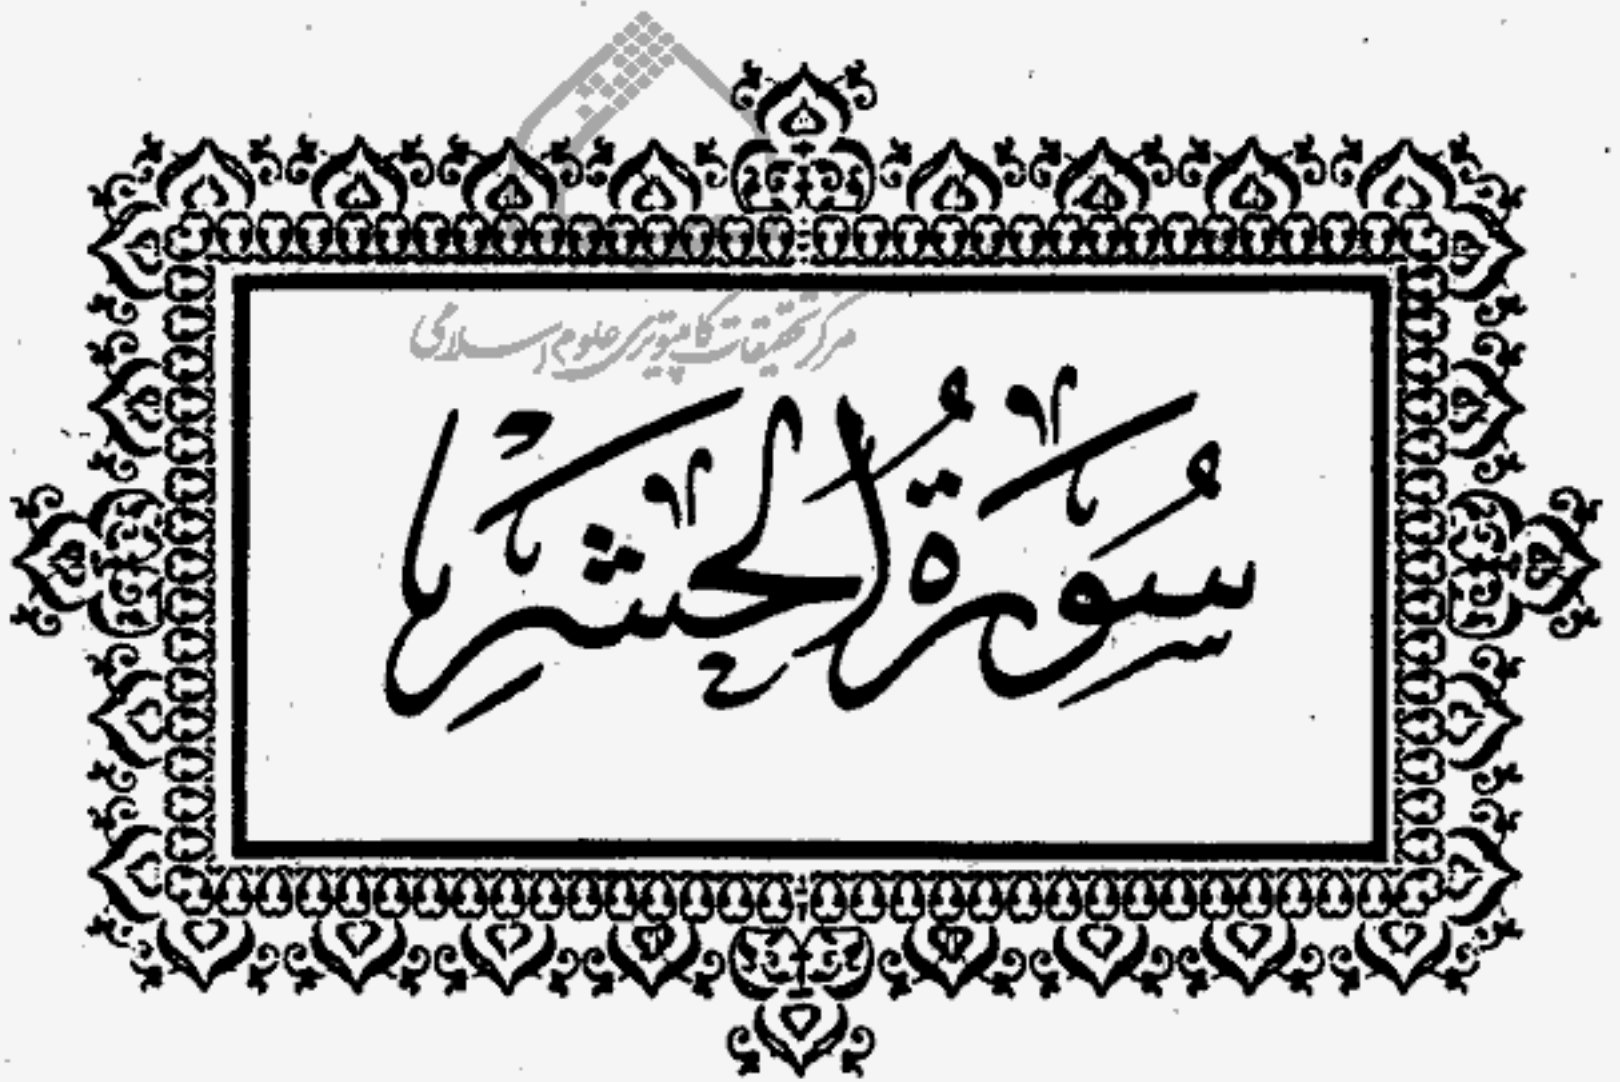 مرکز تحقیقات کامپیوتری علوم اسلامی
سُورَةُ الحَشرِ